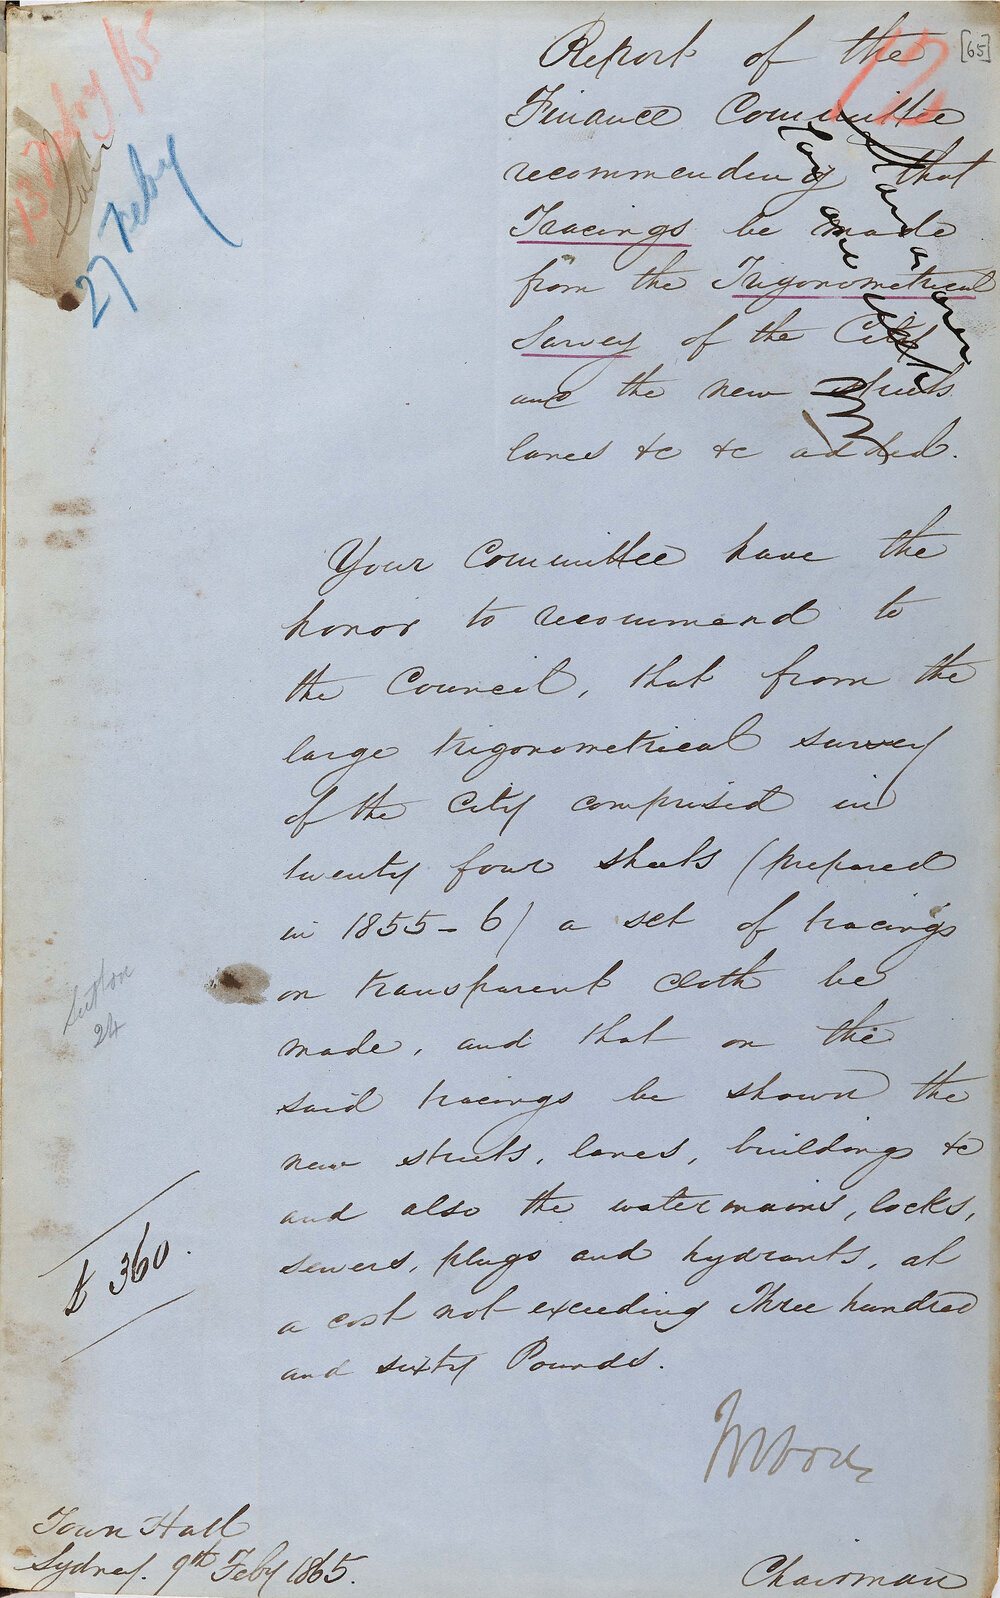 [65]
12
13 Feby/65
27 Feby
Report of the
Finance Committee
recommending that
Tracings be made
from the Trigonometrical
Survey of the City
and the new streets
lanes &c &c added.
Stand over
for one week
Your Committee have the
honor to recommend to
the Council, that from the
large trigonometrical survey
of the City comprised in
twenty four sheets (prepared
in 1855-6) a set of tracings
on transparent cloth be
made, and that on the
said tracings be shown the
new streets, lanes, buildings &c
and also the watermains, locks,
sewers, plugs and hydrants, at
a cost not exceeding Three hundred
and sixty Pounds.
Sutton
24
£360.
Town Hall
Sydney. 9th Feby 1865.
Chairman